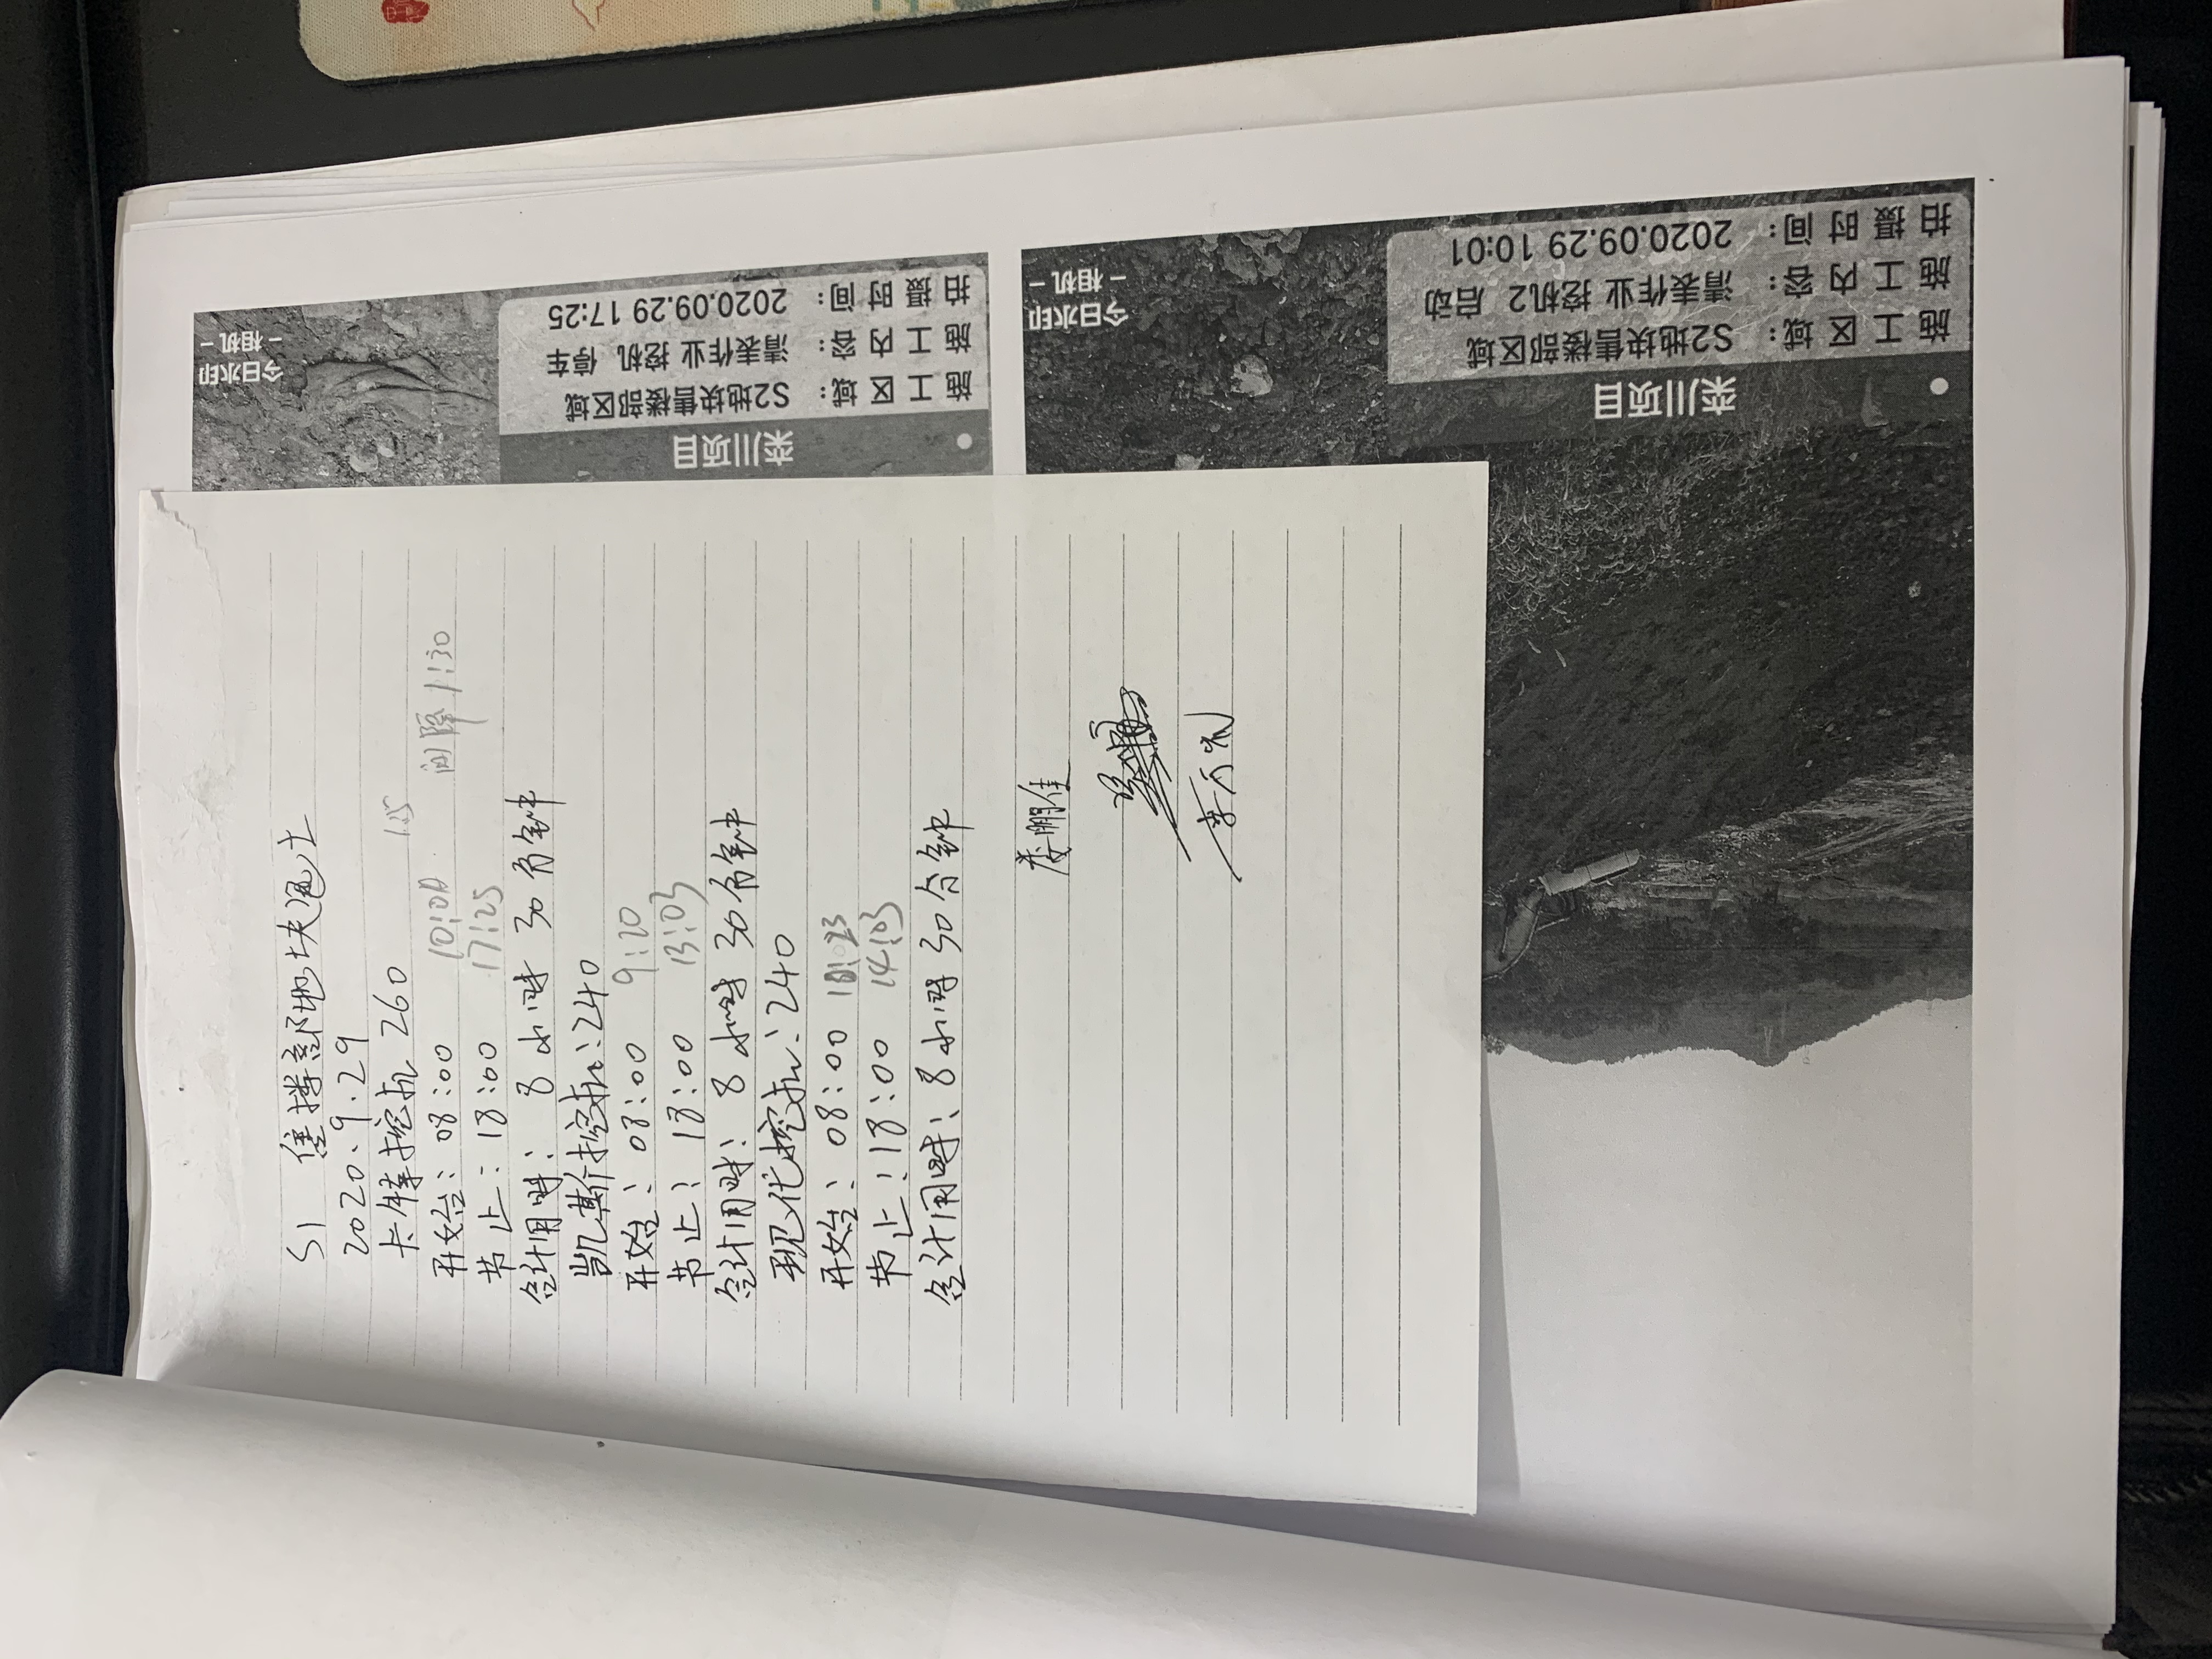 S1 售楼部地块退土
2020.9.29
卡特挖机 260 1:25
开始: 08:00 10:00 间隔 1:30
节止: 18:00 17:25
合计用时: 8小时 30分钟
凯斯挖机: 240
开始: 08:00 9:20
节止: 18:00 13:03
合计用时: 8小时 30分钟
现代挖机: 240
开始: 08:00
节止: 18:00 14:03
合计用时: 8小时 30分钟
娄鹏佳
今日水印
－相机－
栾川项目
施工区域: S2地块售楼部区域
施工内容: 清表作业 挖机 停车
拍摄时间: 2020.09.29 17:25
今日水印
－相机－
栾川项目
施工区域: S2地块售楼部区域
施工内容: 清表作业 挖机2 启动
拍摄时间: 2020.09.29 10:01